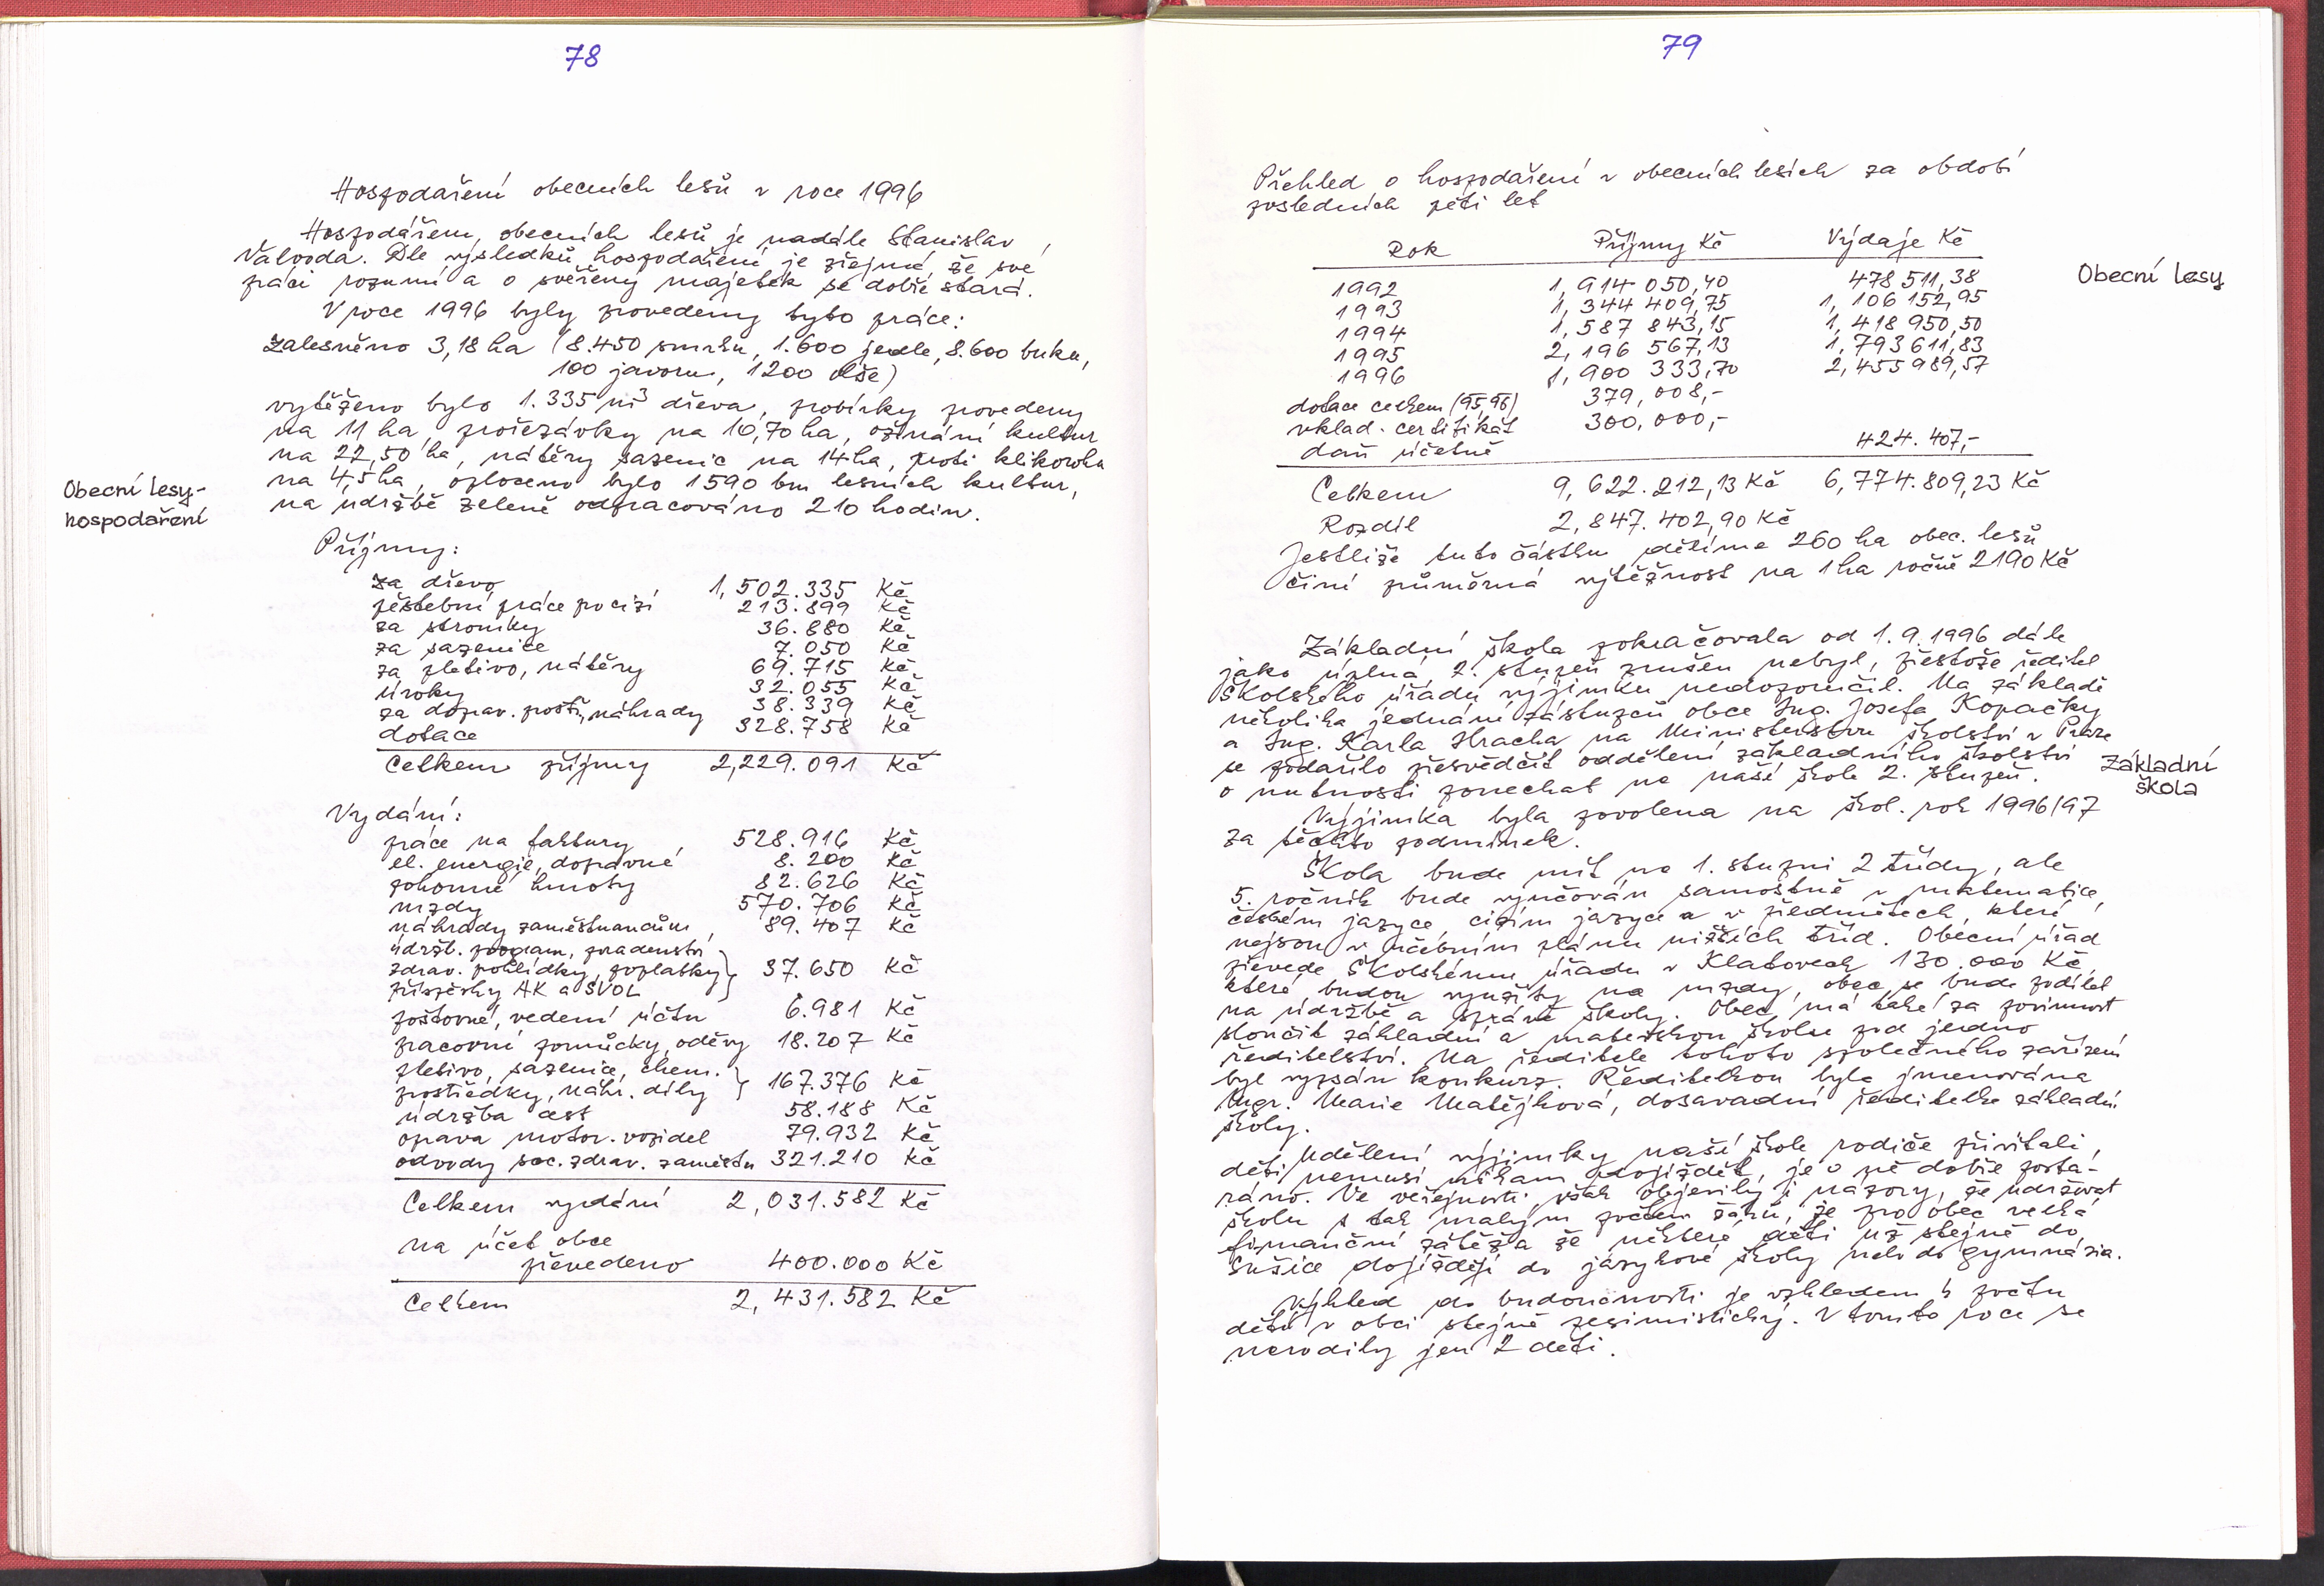 78
Hospodaření obecních lesů v roce 1996
Hospodářem obecních lesů je nadále Stanislav
Valvoda. Dle výsledků hospodaření je zřejmé, že své
práci rozumí a o svěřený majetek se dobře stará.
V roce 1996 byly provedeny tyto práce:
zalesněno 3,18 ha (8.450 smrku, 1.600 jedle, 8.600 buku,
100 javoru, 1200 olše)
vytěženo bylo 1.335 m³ dřeva, probírky provedeny
na 11 ha, prořezávky na 10,70 ha, ožínání kultur
na 22,50 ha, nátěry sazenic na 14 ha, proti klikorohu
na 4,5 ha, oploceno bylo 1590 bm lesních kultur,
na údržbě zeleně odpracováno 210 hodin.
Obecní lesy-
hospodaření
Příjmy:
za dřevo 1,502.335 Kč
pěstební práce pro cizí 213.899 Kč
za stromky 36.880 Kč
za sazenice 7.050 Kč
za pletivo, nátěry 69.715 Kč
úroky 32.055 Kč
za doprav. prostř., náhrady 38.339 Kč
dotace 328.758 Kč
Celkem příjmy 2,229.091 Kč
Vydání:
práce na faktury 528.916 Kč
el. energie, dopravné 8.200 Kč
pohonné hmoty 82.626 Kč
mzdy 570.706 Kč
náhrady zaměstnancům 89.407 Kč
údržb. program, poradenství
zdrav. pohlídky, poplatky } 37.650 Kč
příspěvky AK a SVOL
poštovné, vedení účtu 6.981 Kč
pracovní pomůcky, oděvy 18.207 Kč
pletivo, sazenice, chem.
prostředky, náhr. díly } 167.376 Kč
údržba cest 58.188 Kč
oprava motor. vozidel 79.932 Kč
odvody soc. zdrav. zaměstn 321.210 Kč
Celkem vydání 2,031.582 Kč
na účet obce
převedeno 400.000 Kč
Celkem 2,431.582 Kč
79
Přehled o hospodaření v obecních lesích za období
posledních pěti let
Rok Příjmy Kč Výdaje Kč
1992 1,914 050,40 478 511,38
1993 1,344 409,75 1,106 152,95
1994 1,587 843,15 1,418 950,50
1995 2,196 567,13 1,793 611,83
1996 1,900 333,70 2,455 989,57
dotace celkem (95,96) 379,008,-
vklad. certifikát 300,000,-
daň účetně 424.407,-
Celkem 9,622.212,13 Kč 6,774.809,23 Kč
Rozdíl 2,847.402,90 Kč
Jestliže tuto částku dělíme 260 ha obec. lesů
činí průměrná výtěžnost na 1 ha ročně 2190 Kč
Obecní lesy
Základní škola pokračovala od 1.9.1996 dále
jako úplná, 2. stupeň zrušen nebyl, přestože ředitel
Školského úřadu výjimku nedoporučil. Na základě
několika jednání zástupců obce Ing. Josefa Kopačky
a Ing. Karla Hracha na Ministerstvu školství v Praze
se podařilo přesvědčit oddělení základního školství
o nutnosti ponechat na naší škole 2. stupeň.
Základní
škola
Výjimka byla povolena na škol. rok 1996/97
za těchto podmínek.
Škola bude mít na 1. stupni 2 třídy, ale
5. ročník bude vyučován samostatně v matematice,
českém jazyce, cizím jazyce a v předmětech, které
nejsou v učebním plánu nižších tříd. Obecní úřad
převede Školskému úřadu v Klatovech 130.000 Kč,
které budou využity na mzdy, obec se bude podílet
na údržbě a správě školy. Obec má také za povinnost
sloučit základní a mateřskou školu pod jedno
ředitelství. Na ředitele tohoto společného zařízení
byl vypsán konkurz. Ředitelkou byla jmenována
Mgr. Marie Matějková, dosavadní ředitelka základní
školy.
Udělení výjimky naší škole rodiče přivítali,
děti nemusí nikam dojíždět, je o ně dobře posta-
ráno. Ve veřejnosti však objevily i názory, že udržovat
školu s tak malým počtem žáků, je pro obec velká
finanční zátěž a že některé děti už stejně do
Sušice dojíždějí do jazykové školy nebo do gymnázia.
Výhled do budoucnosti je vzhledem k počtu
dětí v obci stejně pesimistický. V tomto roce se
narodily jen 2 děti.